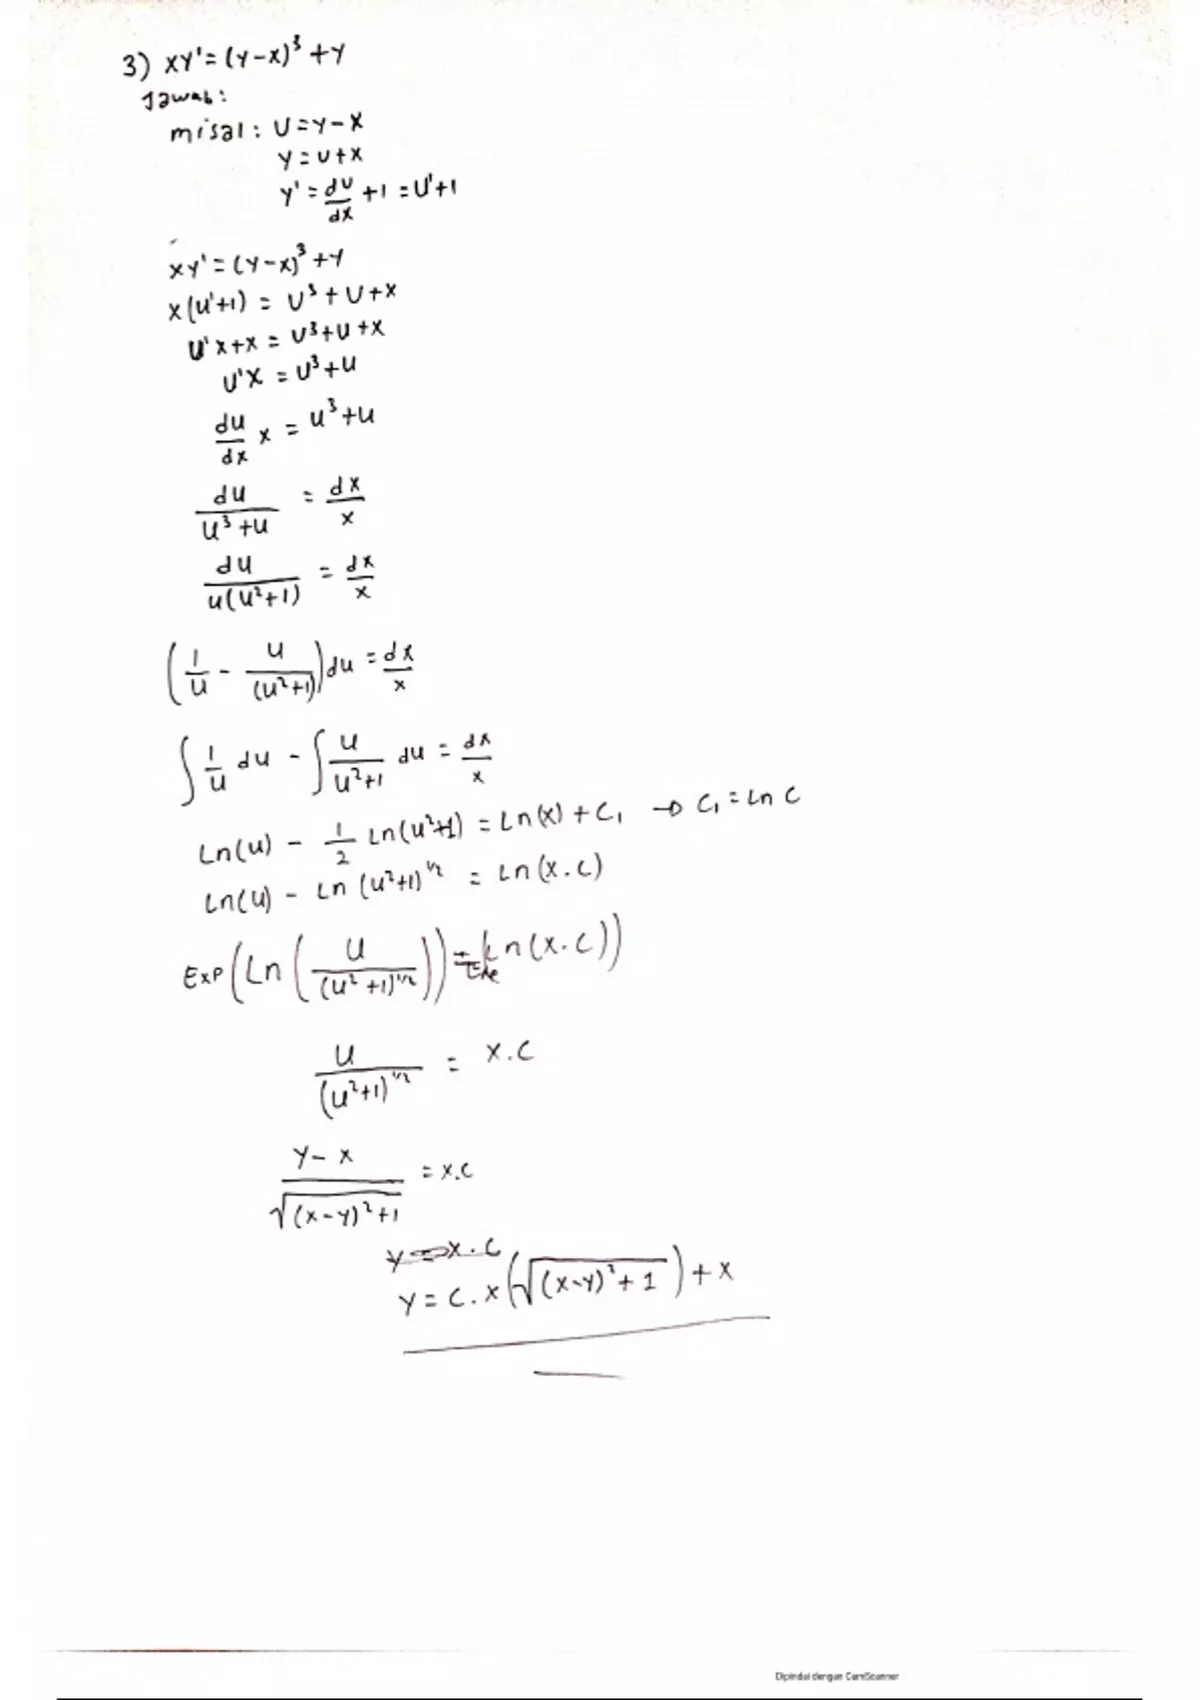 3) xy' = (y-x)³ + y
Jawab:
misal: U = y - x
y = u + x
y' = du/dx + 1 = U' + 1
xy' = (y-x)³ + y
x(u'+1) = U³ + U + x
U'x + x = U³ + U + x
U'x = U³ + U
du/dx x = u³ + u
du/(u³ + u) = dx/x
du/(u(u²+1)) = dx/x
(1/u - u/(u²+1)) du = dx/x
∫ 1/u du - ∫ u/(u²+1) du = dx/x
Ln(u) - 1/2 Ln(u²+1) = Ln(x) + C₁ → C₁ = Ln C
Ln(u) - Ln (u²+1)^1/2 = Ln (x.c)
Exp(Ln(u/(u²+1)^1/2)) = Ln(x.c))
u/(u²+1)^1/2 = x.c
y-x/√((x-y)²+1) = x.c
y = x.c
y = c.x(√((x-y)²+1)) + x
Dipindai dengan CamScanner